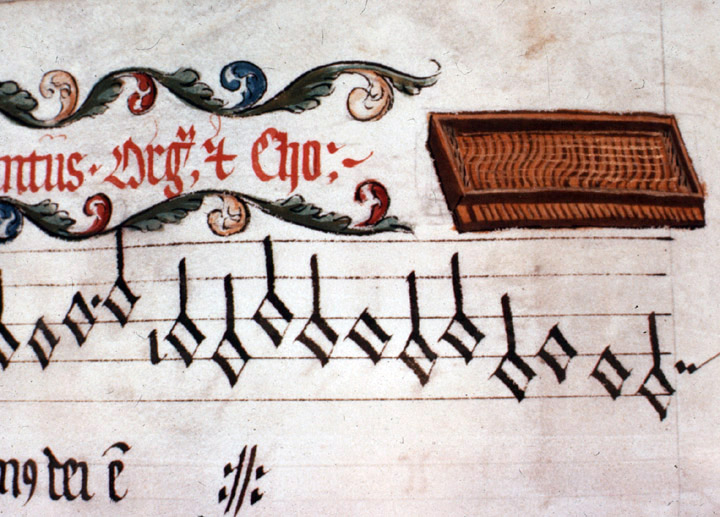 ntus. Org. & Cho:
dei ē